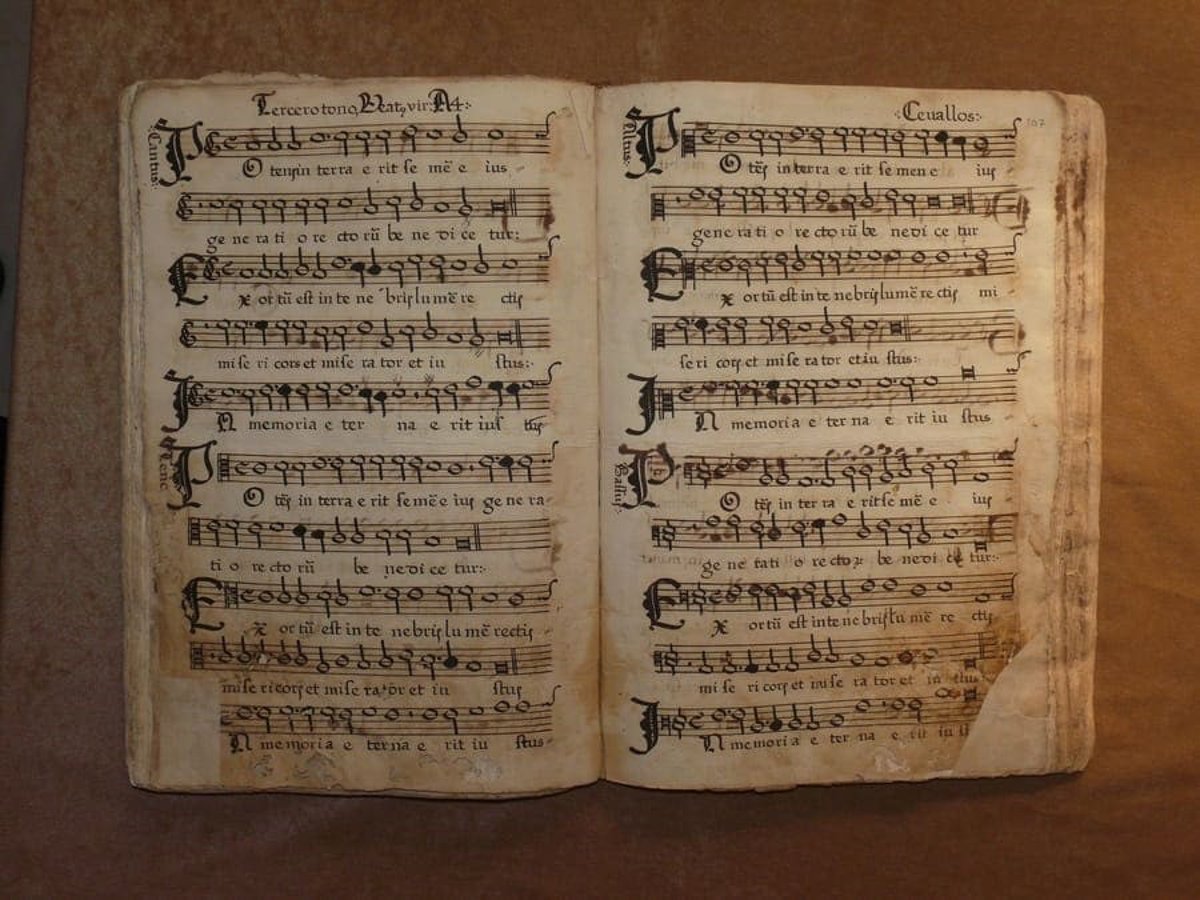 Tercero tono, Beatꝰ vir: A4:
Cantus:
P O tensin terra e rit se mē e ius
ge ne ra ti o re cto rū be ne di ce tur:
E x or tū est in te ne bris lu mē re ctis
mi se ri cors et mi se ra tor et iu stus:
I N memoria e ter na e rit ius tus
P O tēs in terra e rit se mē e ius ge ne ra
ti o re cto rū be ne di ce tur:
E x or tū est in te ne bris lu mē rectis
mi se ri cors et mi se ra tor et iu stus
N memoria e ter na e rit iu stus
Ceuallos:
107
Altus:
P O tēs in terra e rit se men e ius
gene ra ti o re cto rū be ne di ce tur
E x or tū est in te ne bris lu mē re ctis mi
se ri cors et mi se ra tor et iu stus:
I N memoria e ter na e rit iu stus
Bassus:
P O tēs in ter ra e rit se mē e ius
ge ne rati o re ctoꝝ be ne di ce tur:
E x or tū est in te ne bris lu mē re ctis
mi se ri cors et mi se ra tor et iu stus
I N memoria e ter na e rit iu